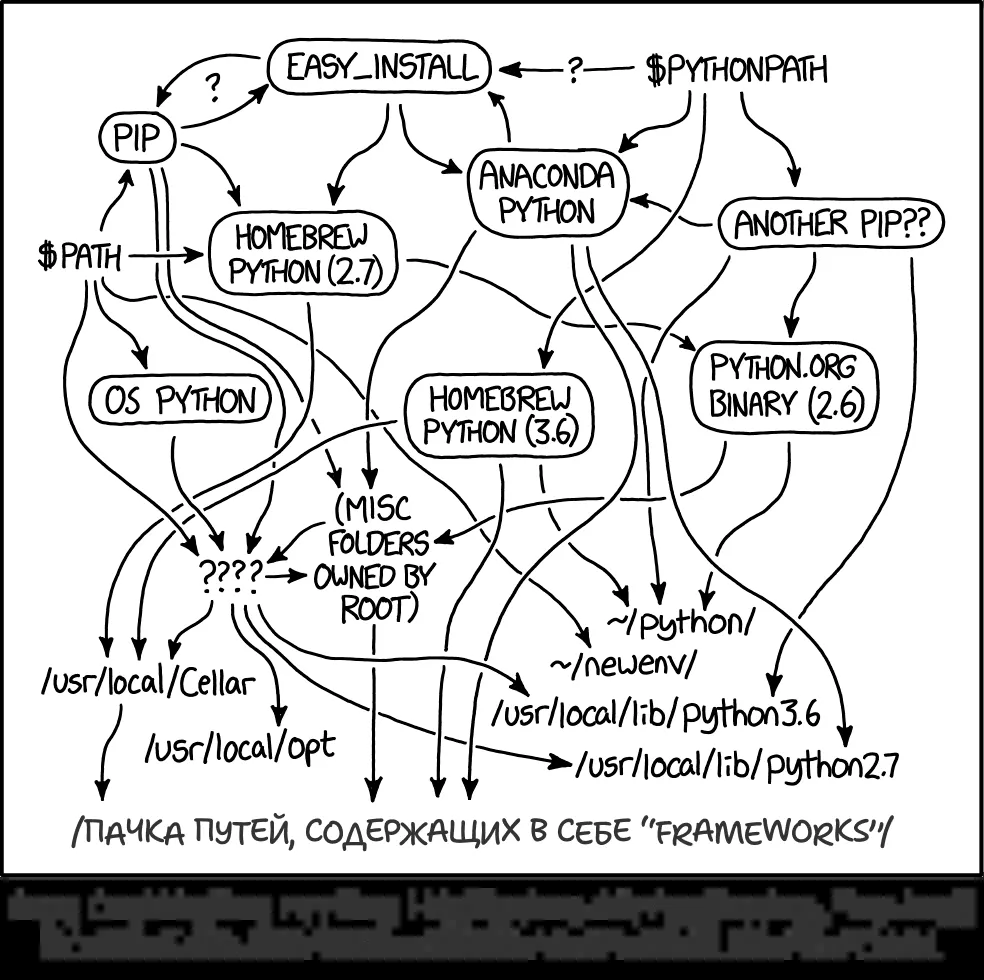 EASY_INSTALL
?
$PYTHONPATH
?
PIP
ANACONDA
PYTHON
ANOTHER PIP??
HOMEBREW
PYTHON (2.7)
$PATH
OS PYTHON
HOMEBREW
PYTHON (3.6)
PYTHON.ORG
BINARY (2.6)
(MISC
FOLDERS
OWNED BY
ROOT)
????
~/python/
~/newenv/
/usr/local/Cellar
/usr/local/lib/python3.6
/usr/local/opt
/usr/local/lib/python2.7
/ПАЧКА ПУТЕЙ, СОДЕРЖАЩИХ В СЕБЕ "FRAMEWORKS"/